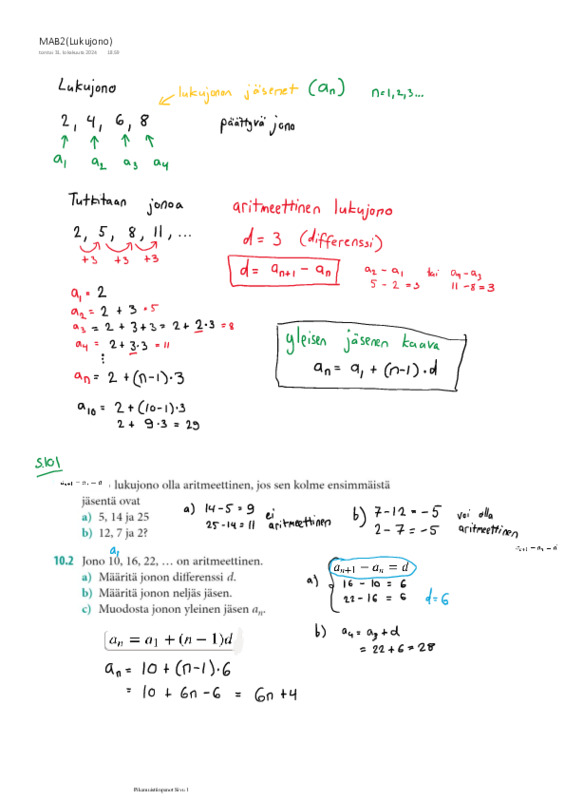 MAB2(Lukujono)
Lukujono
lukujonon jäsenet (aₙ) n=1,2,3...
2, 4, 6, 8 päättyvä jono
a₁ a₂ a₃ a₄
Tutkitaan jonoa
aritmeettinen lukujono
2, 5, 8, 11, ...
d = 3 (differenssi)
+3 +3 +3
d = aₙ₊₁ - aₙ
a₂ - a₁ tai a₄ - a₃
5 - 2 = 3 11 - 8 = 3
a₁ = 2
a₂ = 2 + 3 = 5
a₃ = 2 + 3 + 3 = 2 + 2·3 = 8
a₄ = 2 + 3·3 = 11
⋮
aₙ = 2 + (n-1)·3
yleisen jäsenen kaava
aₙ = a₁ + (n-1)·d
a₁₀ = 2 + (10-1)·3
2 + 9·3 = 29
S.101
lukujono olla aritmeettinen, jos sen kolme ensimmäistä
jäsentä ovat
a) 5, 14 ja 25
b) 12, 7 ja 2?
a) 14 - 5 = 9 ei
25 - 14 = 11 aritmeettinen
b) 7 - 12 = -5 voi olla
2 - 7 = -5 aritmeettinen
a₁
10.2 Jono 10, 16, 22, … on aritmeettinen.
a) Määritä jonon differenssi d.
b) Määritä jonon neljäs jäsen.
c) Muodosta jonon yleinen jäsen aₙ.
a) aₙ₊₁ − aₙ = d
16 - 10 = 6
22 - 16 = 6 d = 6
b) a₄ = a₃ + d
= 22 + 6 = 28
aₙ = a₁ + (n − 1)d
aₙ = 10 + (n-1)·6
= 10 + 6n - 6 = 6n + 4